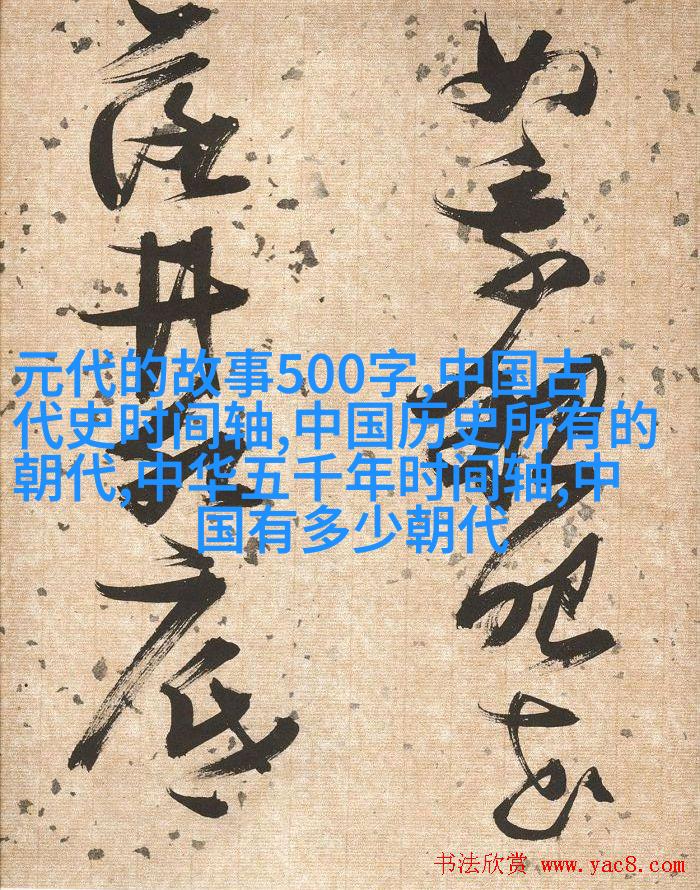 似乘船眼花
落井水底
元代的故事500字,中国古
代史时间轴,中国历史所有的
朝代,中华五千年时间轴,中
国有多少朝代
书法欣赏 www.yac8.com